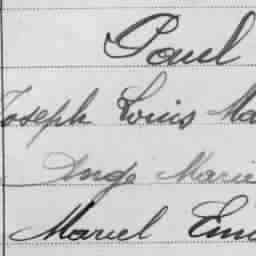 Paul
Joseph Louis Ma
Ange Marie
Marcel Em